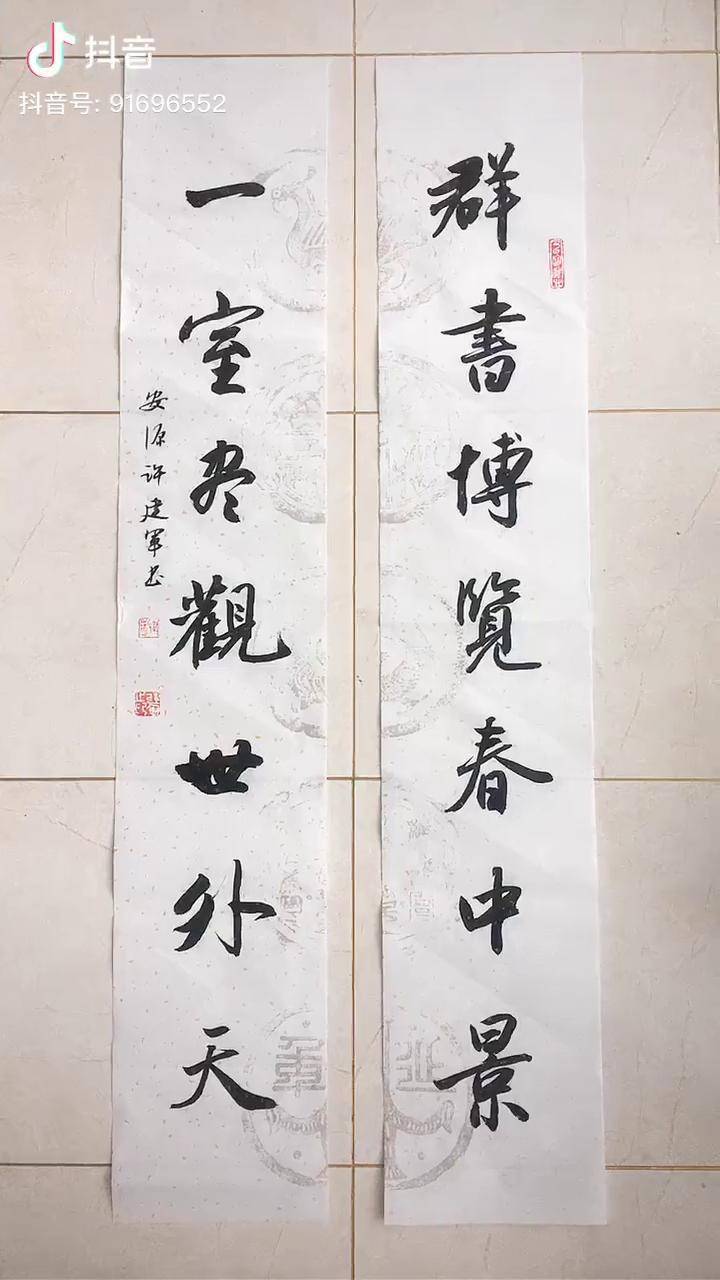 抖音
抖音号: 91696552
群書博覽春中景
一室尽觀世外天
安源许建军书